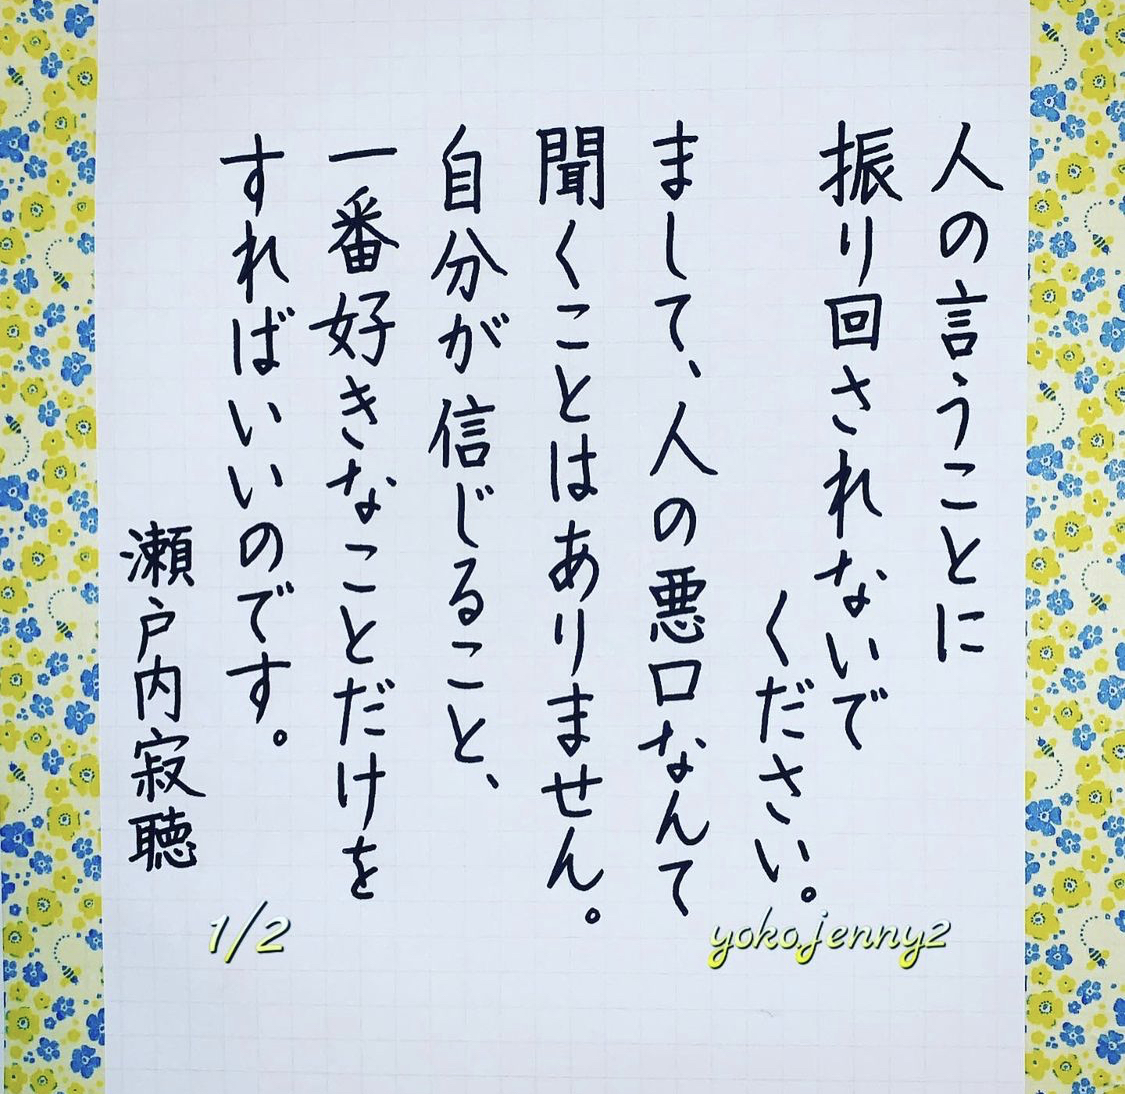 人の言うことに
振り回されないで
ください。
まして、人の悪口なんて
聞くことはありません。
自分が信じること、
一番好きなことだけを
すればいいのです。
瀬戸内寂聴
1/2
yoko.jenny2